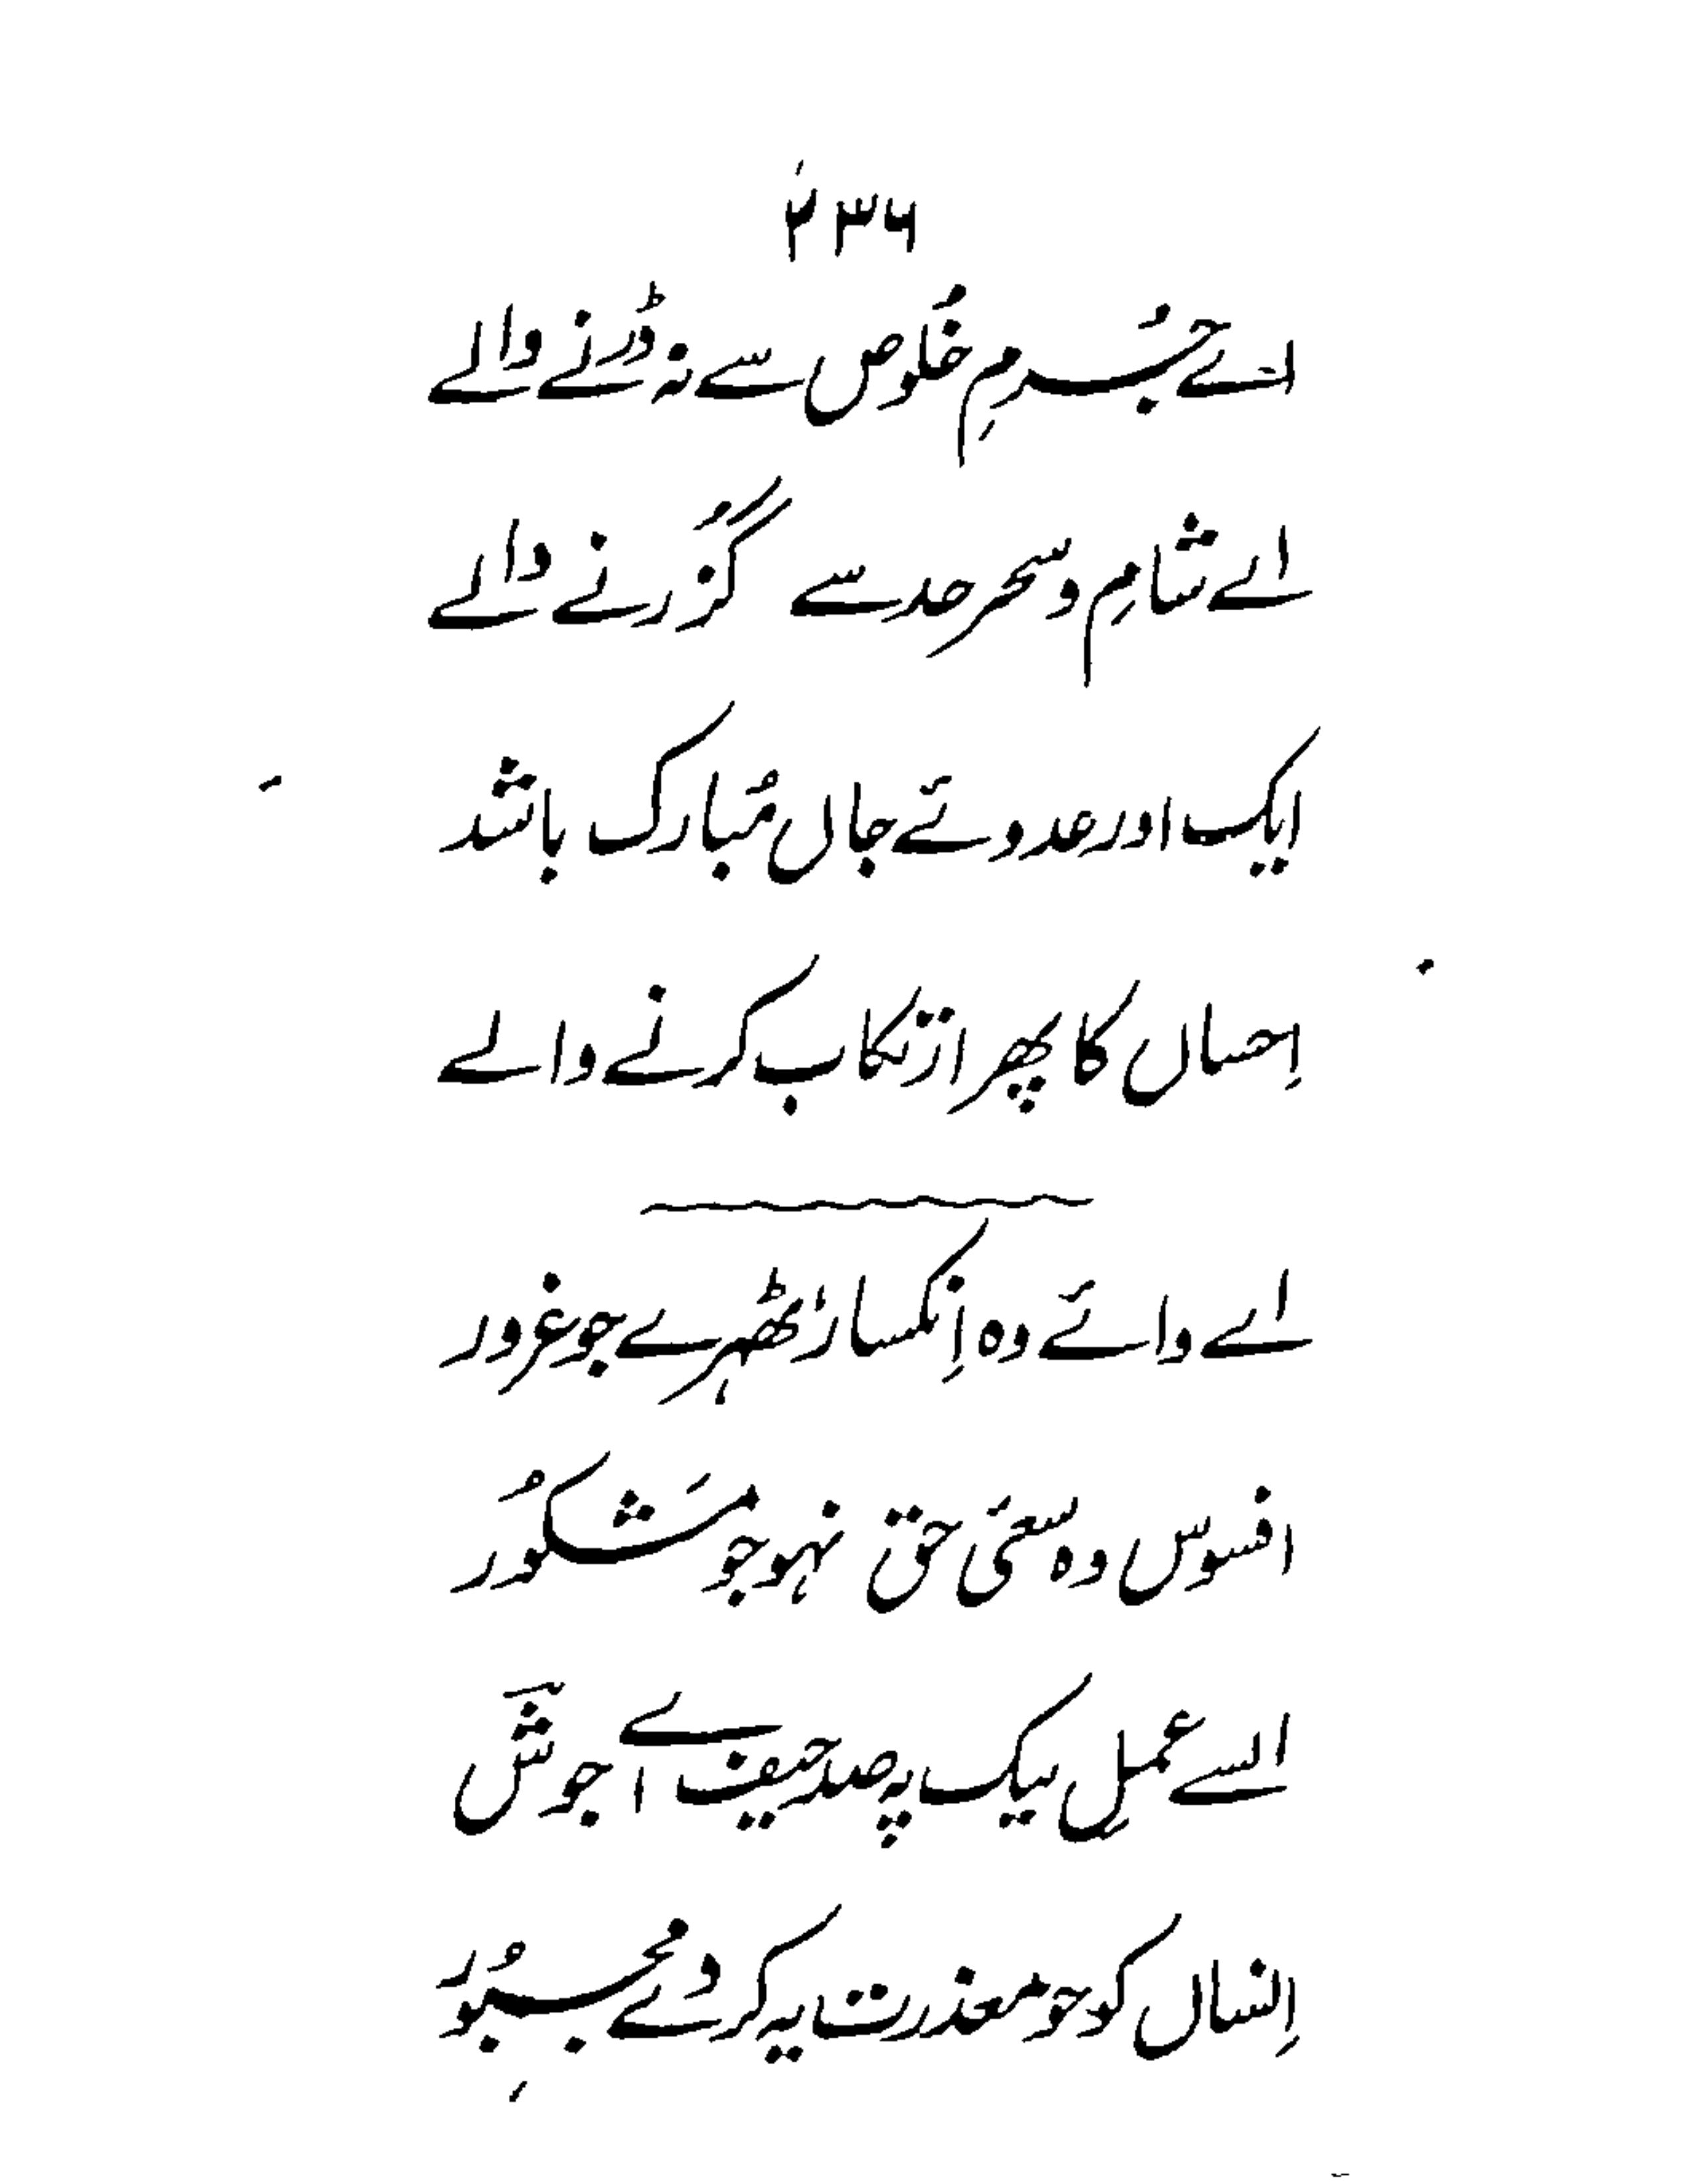 ۲۳۶
اے جُرمِ خلُوص سے نہ ڈرنے والے
اے شامِ و سحر حد سے گُزرنے والے
ایک اور عدوئے جاں مُبارک باشد
اِحساں کا پھر ارتکاب کرنے والے
اے وائے وہ اِنکسار ٹھہرے جو غرور
افسوس وہ سعئ حق نہو جو مَشکُور
اے عملِ نیک پہ صد حیف اے جوشؔ
اِنساں کو جو معذرت پہ کر دے مجبُور